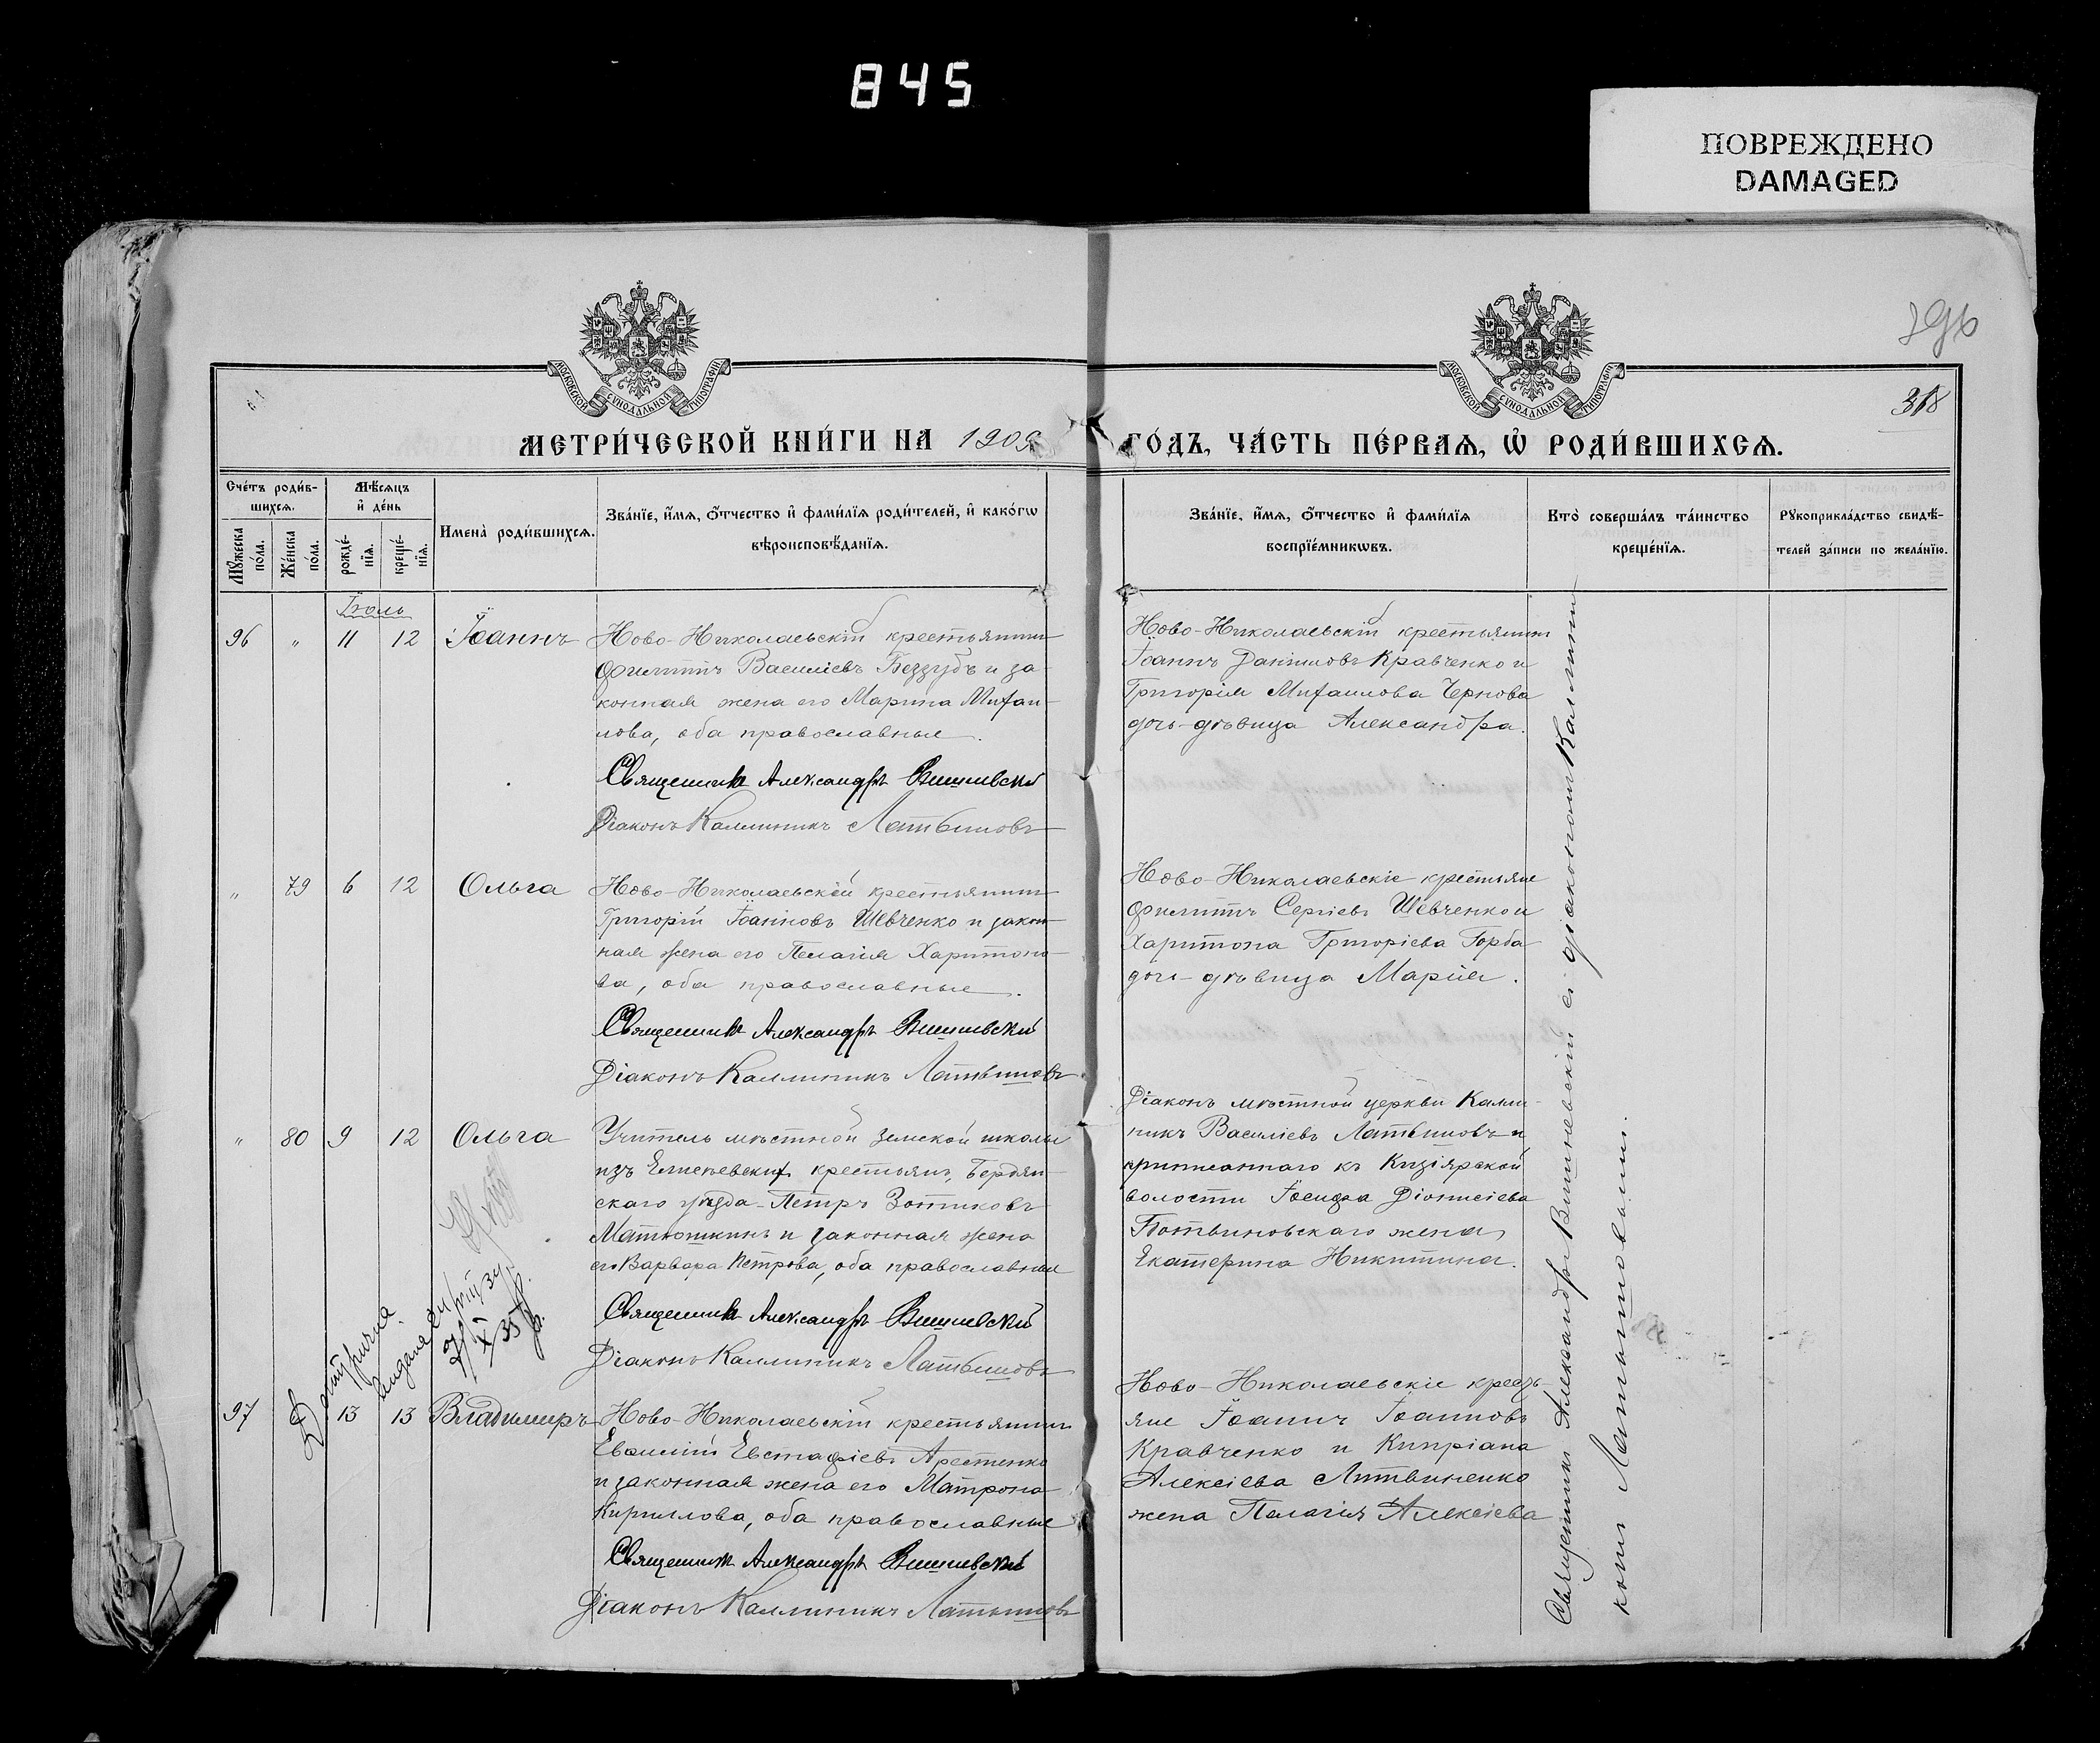 845
ПОВРЕЖДЕНО
DAMAGED
318
МОСКОВСКОЙ СѴНОДАЛЬНОЙ ТИПОГРАФІИ
МОСКОВСКОЙ СѴНОДАЛЬНОЙ ТИПОГРАФІИ
МЕТРИ́ЧЕСКОЙ КНИ́ГИ НА 1909 ГО́ДЪ, ЧА́СТЬ ПЕ́РВАѦ, Ѡ҆ РОДИ́ВШИХСѦ.
Сче́тъ роди́в-
шихсѧ.
Мѣ́сѧцъ
и҆ де́нь
Мꙋ́жеска по́ла.
Же́нска по́ла.
рожде́-нїѧ.
креще́-нїѧ.
Имена̀ роди́вшихсѧ.
Зва́нїе, и҆́мѧ, ѻ҆́тчество и҆ фами́лїѧ роди́телей, и҆ како́гѡ
вѣроисповѣ́данїѧ.
Зва́нїе, и҆́мѧ, ѻ҆́тчество и҆ фами́лїѧ
воспрїе́мникѡвъ.
Кто̀ соверша́лъ та́инство
креще́нїѧ.
Рꙋкоприкла́дство свидѣ́-
телей за́писи по жела́нїю.
Іюль
96 " 11 12 Іоаннъ
Ново-Николаевскій крестьянинъ
Филиппъ Василіевъ Беззубъ и за-
конная жена его Марина Михаи-
лова, оба православные.
Священникъ Александръ Вишневскій
Діаконъ Каллиникъ Латвиновъ
Ново-Николаевскій крестьянинъ
Іоаннъ Даніиловъ Кравченко и
Григорія Михаилова Чернова
дочь-дѣвица Александра.
" 79 6 12 Ольга
Ново-Николаевскій крестьянинъ
Григорій Іоанновъ Шевченко и закон-
ная жена его Пелагія Харитоно-
ва, оба православные.
Священникъ Александръ Вишневскій
Діаконъ Каллиникъ Латвиновъ
Ново-Николаевскіе крестьяне
Филиппъ Сергіевъ Шевченко и
Харитона Григоріева Горба
дочь-дѣвица Марія.
" 80 9 12 Ольга
Учитель мѣстной земской школы
изъ крестьянъ, Бердян-
скаго уѣзда Петръ Зотиковъ
Матюшкинъ и законная жена
его Варвара Петрова, оба православные
Священникъ Александръ Вишневскій
Діаконъ Каллиникъ Латвиновъ
Діаконъ мѣстной церкви Калли-
никъ Василіевъ Латвиновъ и
приписаннаго къ Кизіярской
волости Іосифа Діонисіева
жена
Екатерина Никитина.
97 13 13 Владимиръ
Ново-Николаевскій крестьянинъ
Евстафіевъ Арестенко
и законная жена его Матрона
Кириллова, оба православные
Священникъ Александръ Вишневскій
Діаконъ Каллиникъ Латвиновъ
Ново-Николаевскіе кресть-
яне Іоаннъ Іоанновъ
Кравченко и Кипріана
Алексіева Литвиненко
жена Пелагія Алексіева
Священникъ Александръ Вишневскій съ діакономъ Каллини-
комъ Латвиновымъ.